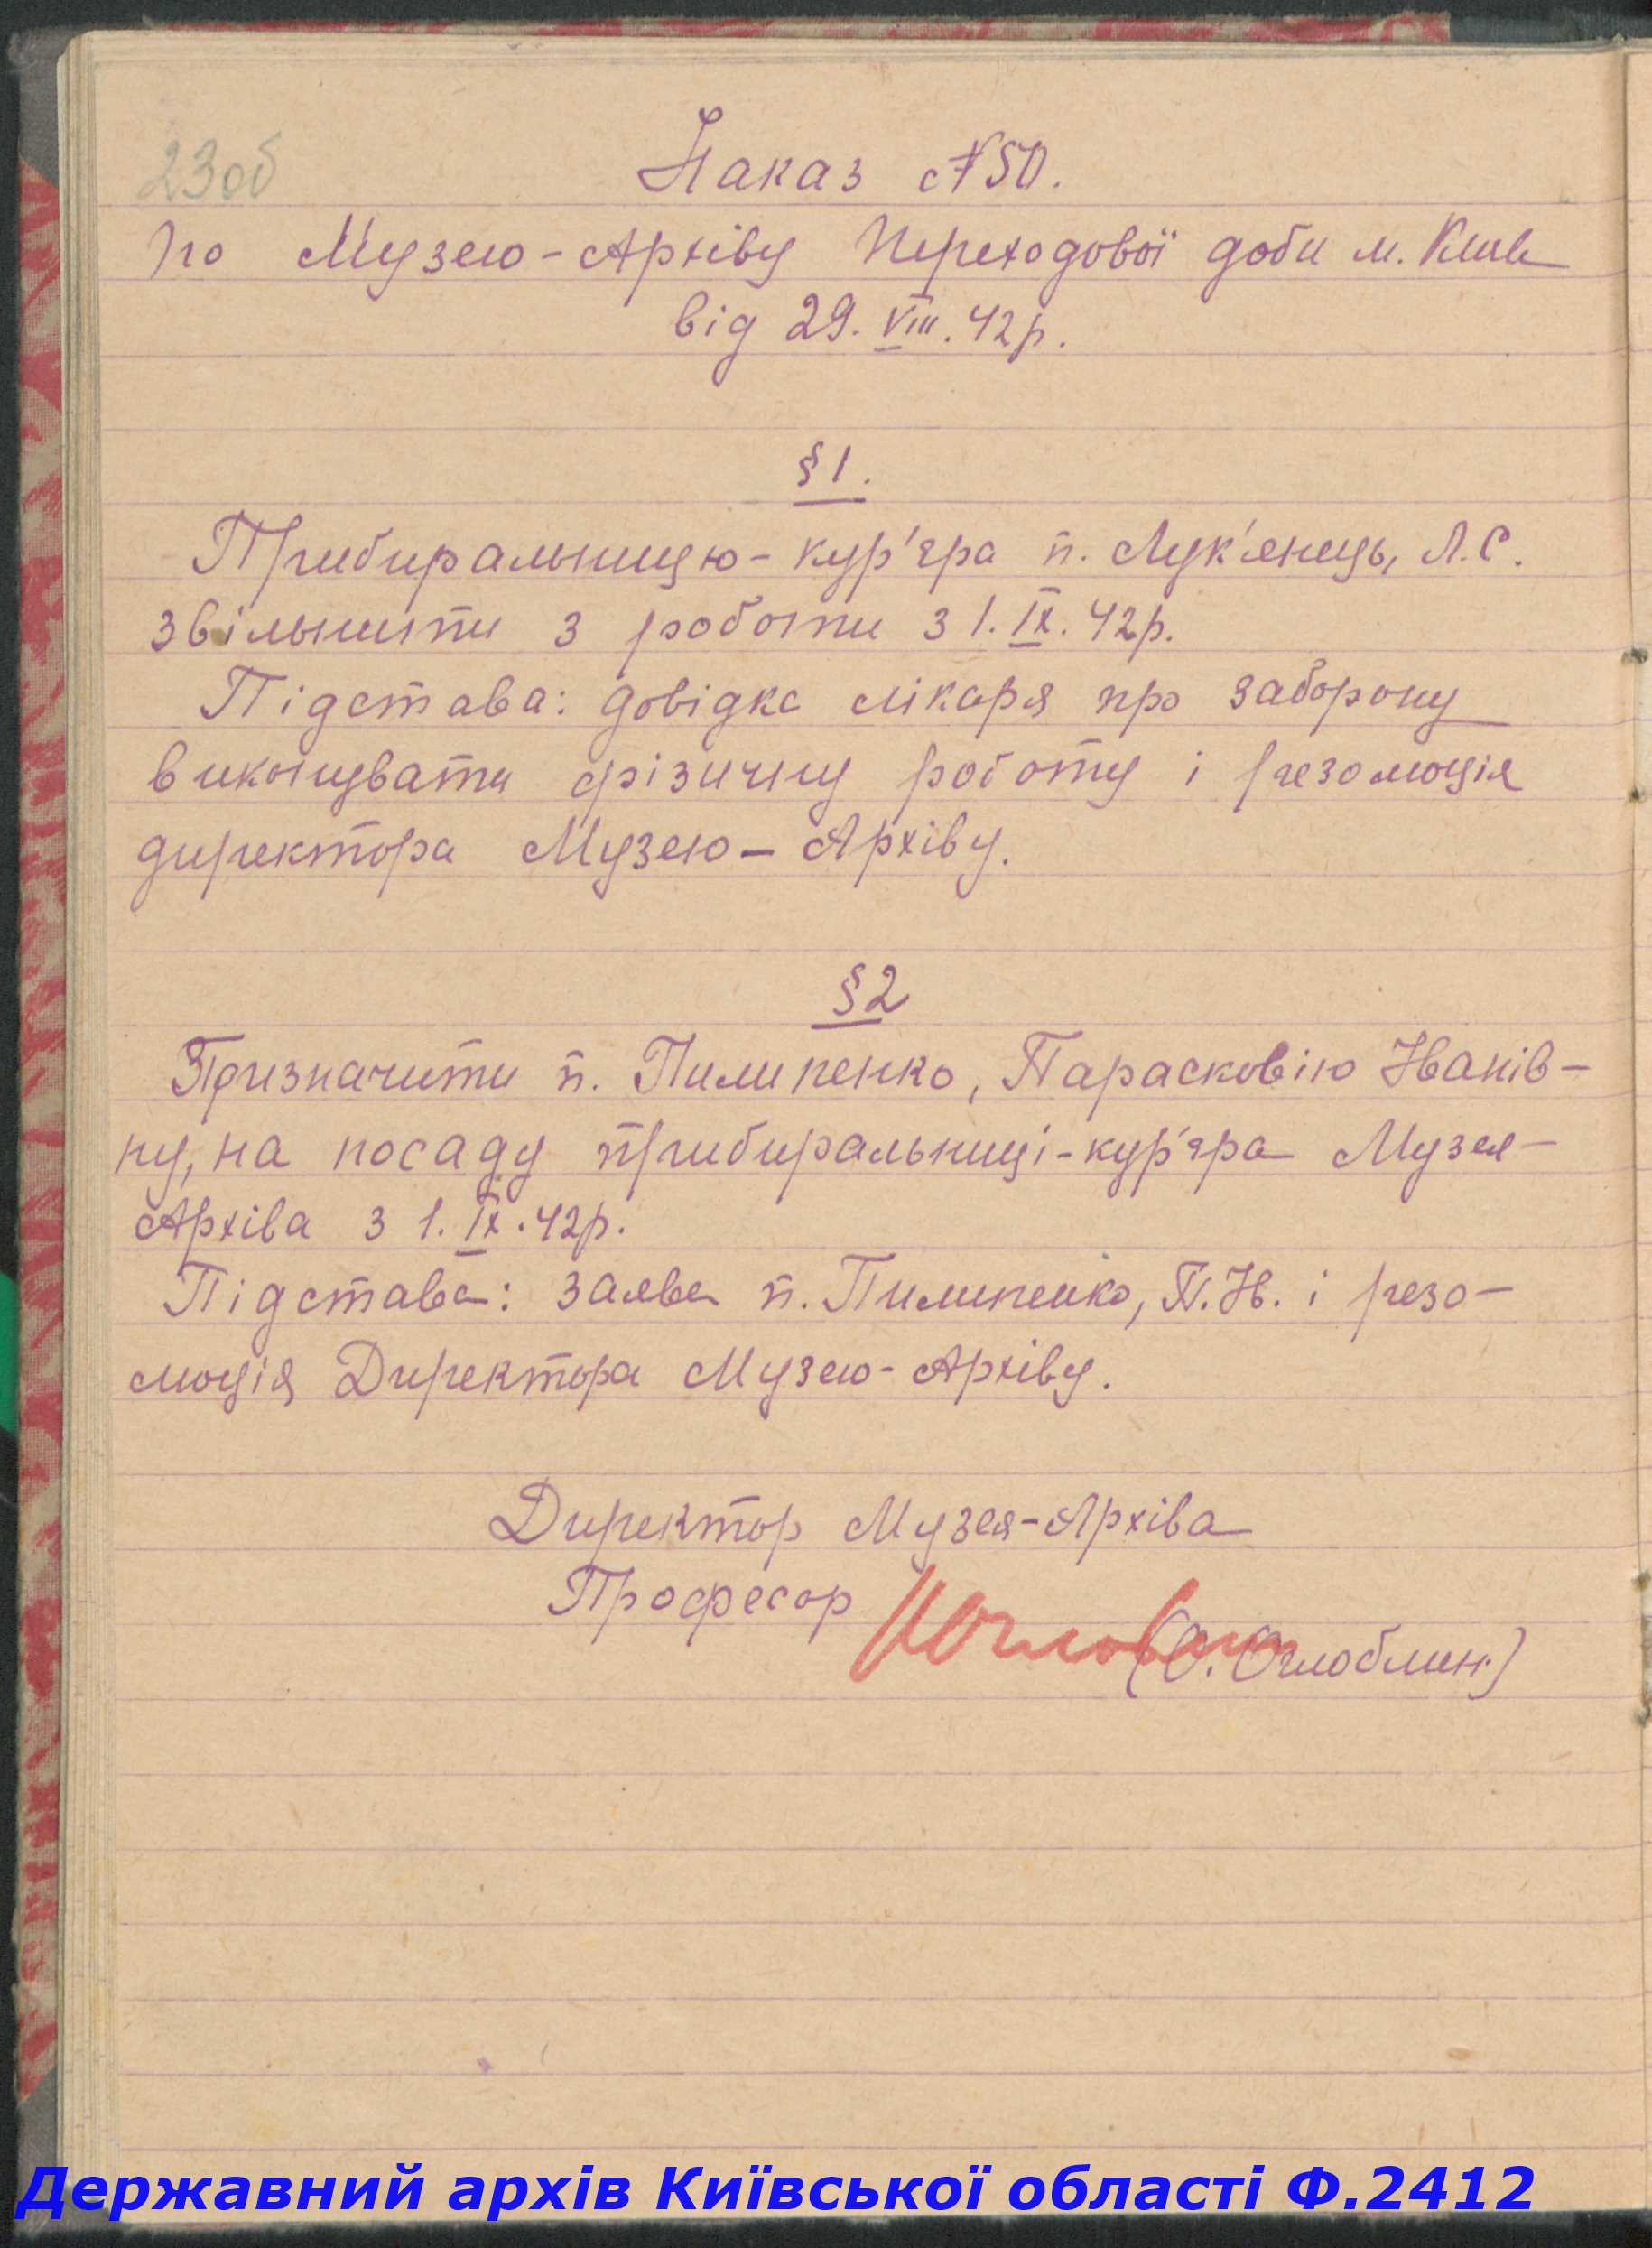 23об
Наказ №50.
По Музею-Архіву Переходової доби м. Київ
від 29.VIII.42р.
§1.
Прибиральницю-кур'єра п. Лук'янець, Л.С.
звільнити з роботи з 1.IX.42р.
Підстава: довідка лікаря про заборону
виконувати фізичну роботу і резолюція
директора Музею-Архіву.
§2
Призначити п. Пилипенко, Парасковію Іванів-
ну, на посаду прибиральниці-кур'єра Музея-
Архіва з 1.IX.42р.
Підстава: заява п. Пилипенко, П.І. і резо-
люція Директора Музею-Архіву.
Директор Музея-Архіва
Професор
(О. Оглоблин)
Державний архів Київської області Ф.2412